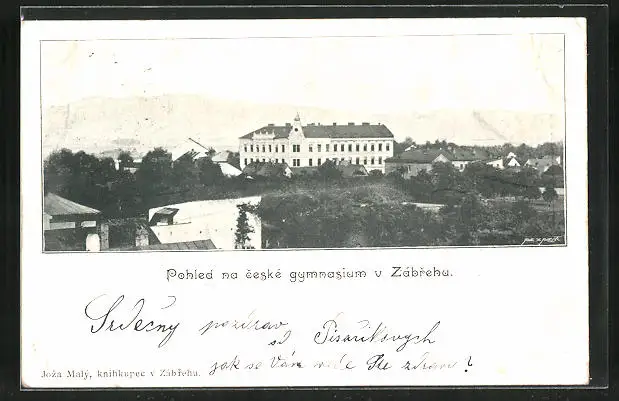 Pohled na české gymnasium v Zábřehu.
Srdečný pozdrav
od Pisaříkových
jak se Vám vede Ste zdrávi?
Joža Malý, knihkupec v Zábřehu.